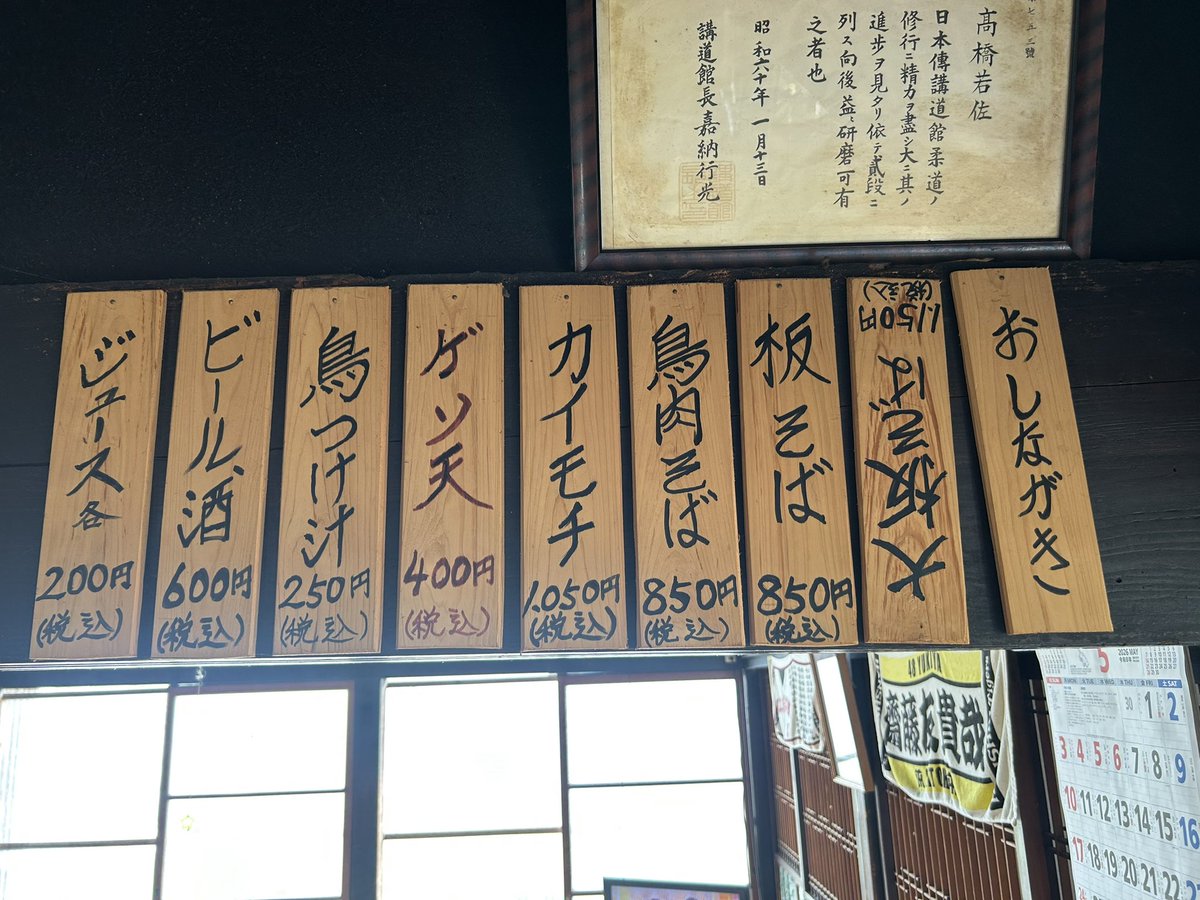 髙橋若佐
日本傳講道館柔道ノ
修行ニ精力ヲ盡シ大ニ其ノ
進歩ヲ見タリ依テ貳段ニ
列ス向後益々研磨可有
之者也
昭和六十年一月十三日
講道館長嘉納行光
おしながき
大板そば
1,150円
(税込)
板そば
850円
(税込)
鳥肉そば
850円
(税込)
カイモチ
1,050円
(税込)
ゲソ天
400円
(税込)
鳥つけ汁
250円
(税込)
ビール、酒
600円
(税込)
ジュース各
200円
(税込)
齋藤友貴哉
5
2026 MAY
日 SUN 月 MON 火 TUE 水 WED 木 THU 金 FRI 土 SAT
30 1 2
3 4 5 6 7 8 9
10 11 12 13 14 15 16
17 18 19 20 21 22